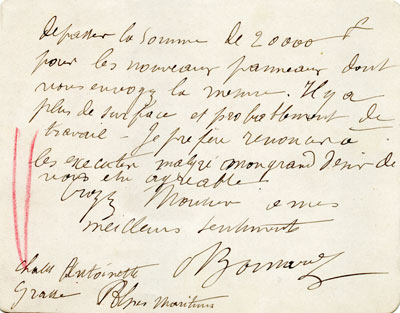 depasser la somme de 20000 f
pour les nouveaux panneaux dont
vous envoyez la mesure. Il y a
plus de surface et probablement de
travail - Je prefere renoncer à
les executer malgré mon grand desir de
vous etre agréable
Croyez Monsieur à mes
meilleurs sentiments
Chalet Antoinette
PBonnard
Grasse Alpes Maritimes